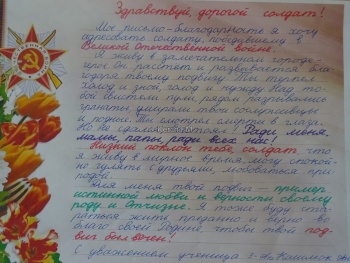 Здравствуй, дорогой солдат!
Мое письмо-благодарность я хочу
адресовать солдату, победившему в
Великой Отечественной войне.
Я живу в замечательном городе-
герое. Он растет и развивается бла-
годаря твоему подвигу. Ты терпел
холод и зной, голод и нужду. Над то-
бой свистели пули, рядом разрывались
гранаты, умирали твои сослуживцы
и родные. Ты смотрел смерти в глаза.
Но не сдавался. Ради меня,
мамы, папы, ради всех нас!
Низкий поклон тебе, солдат, что
я живу в мирное время, могу спокой-
но гулять с друзьями, любоваться при-
родой.
Для меня твой подвиг - пример
истинной любви и верности своему
роду и Отчизне. Я тоже буду ста-
раться жить преданно и верно во
благо своей Родине, чтобы твой под-
виг был вечен!
С уважением ученица